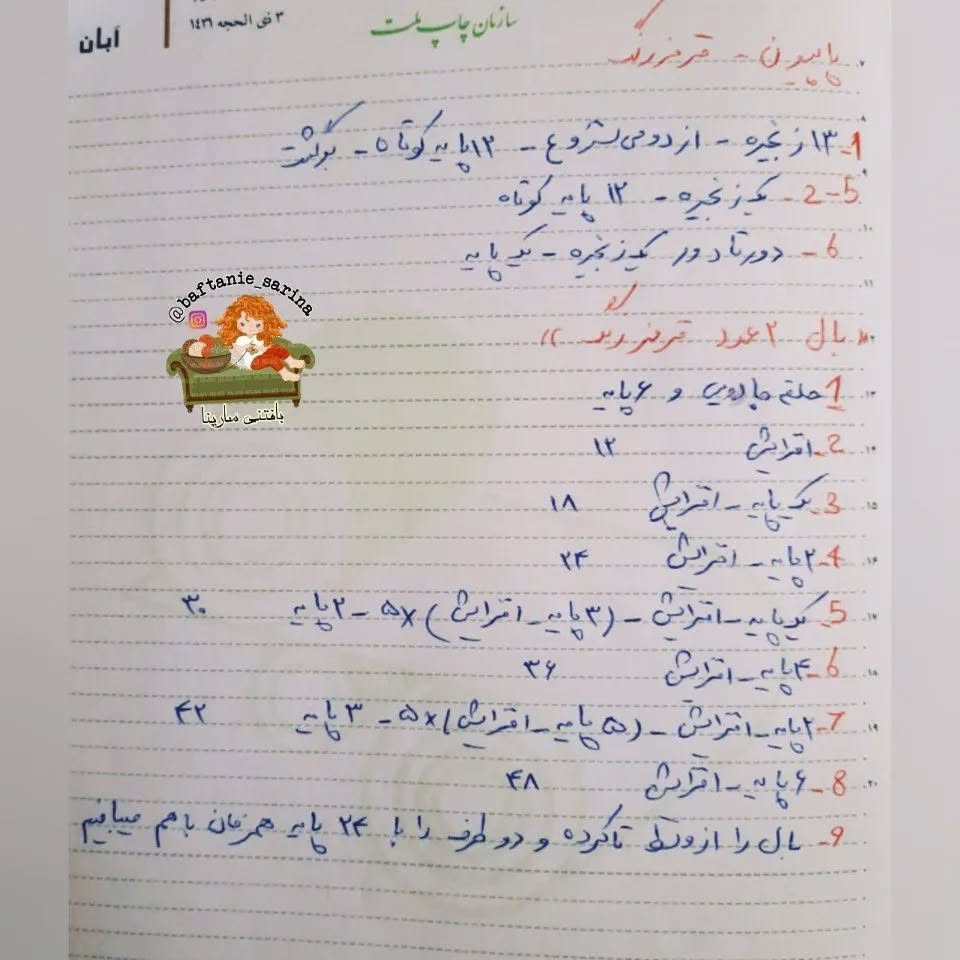 ۳ ذی الحجه ۱۴۳۶
سازمان چاپ ملت
آبان
پاپیون - قرمز رنگ
1- ۱۳ زنجیره - از دومی شروع - ۱۲ پایه کوتاه - برگشت
2-5- یک زنجیره - ۱۲ پایه کوتاه
6- دور تا دور یک زنجیره - یک پایه
@baftanie_sarina
بافتنی سارینا
بال ۲ عدد قرمز رنگ ((
1 حلقه جادویی و ۶ پایه
2- افزایش ۱۲
3- یک پایه - افزایش ۱۸
4- ۲ پایه - افزایش ۲۴
5- یک پایه - افزایش - (۳ پایه - افزایش) ×۵ - ۲ پایه ۳۰
6- ۴ پایه - افزایش ۳۶
7- ۲ پایه - افزایش - (۵ پایه - افزایش) ×۵ - ۳ پایه ۴۲
8- ۶ پایه - افزایش ۴۸
9- بال را از وسط تا کرده و دو طرف را با ۲۴ پایه همزمان باهم میبافیم